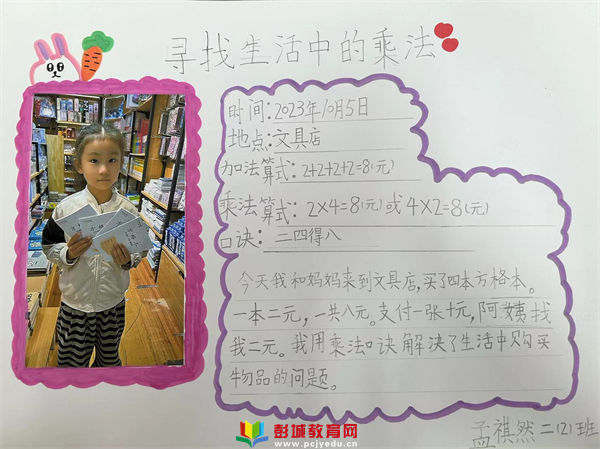 寻找生活中的乘法
时间:2023年10月5日
地点:文具店
加法算式:2+2+2+2=8(元)
乘法算式:2×4=8(元)或4×2=8(元)
口诀:二四得八
今天我和妈妈来到文具店,买了四本方格本。
一本二元,一共八元。支付一张十元,阿姨找
我二元。我用乘法口诀解决了生活中购买
物品的问题。
孟祺然二(2)班
彭城教育网
www.pcjyedu.cn